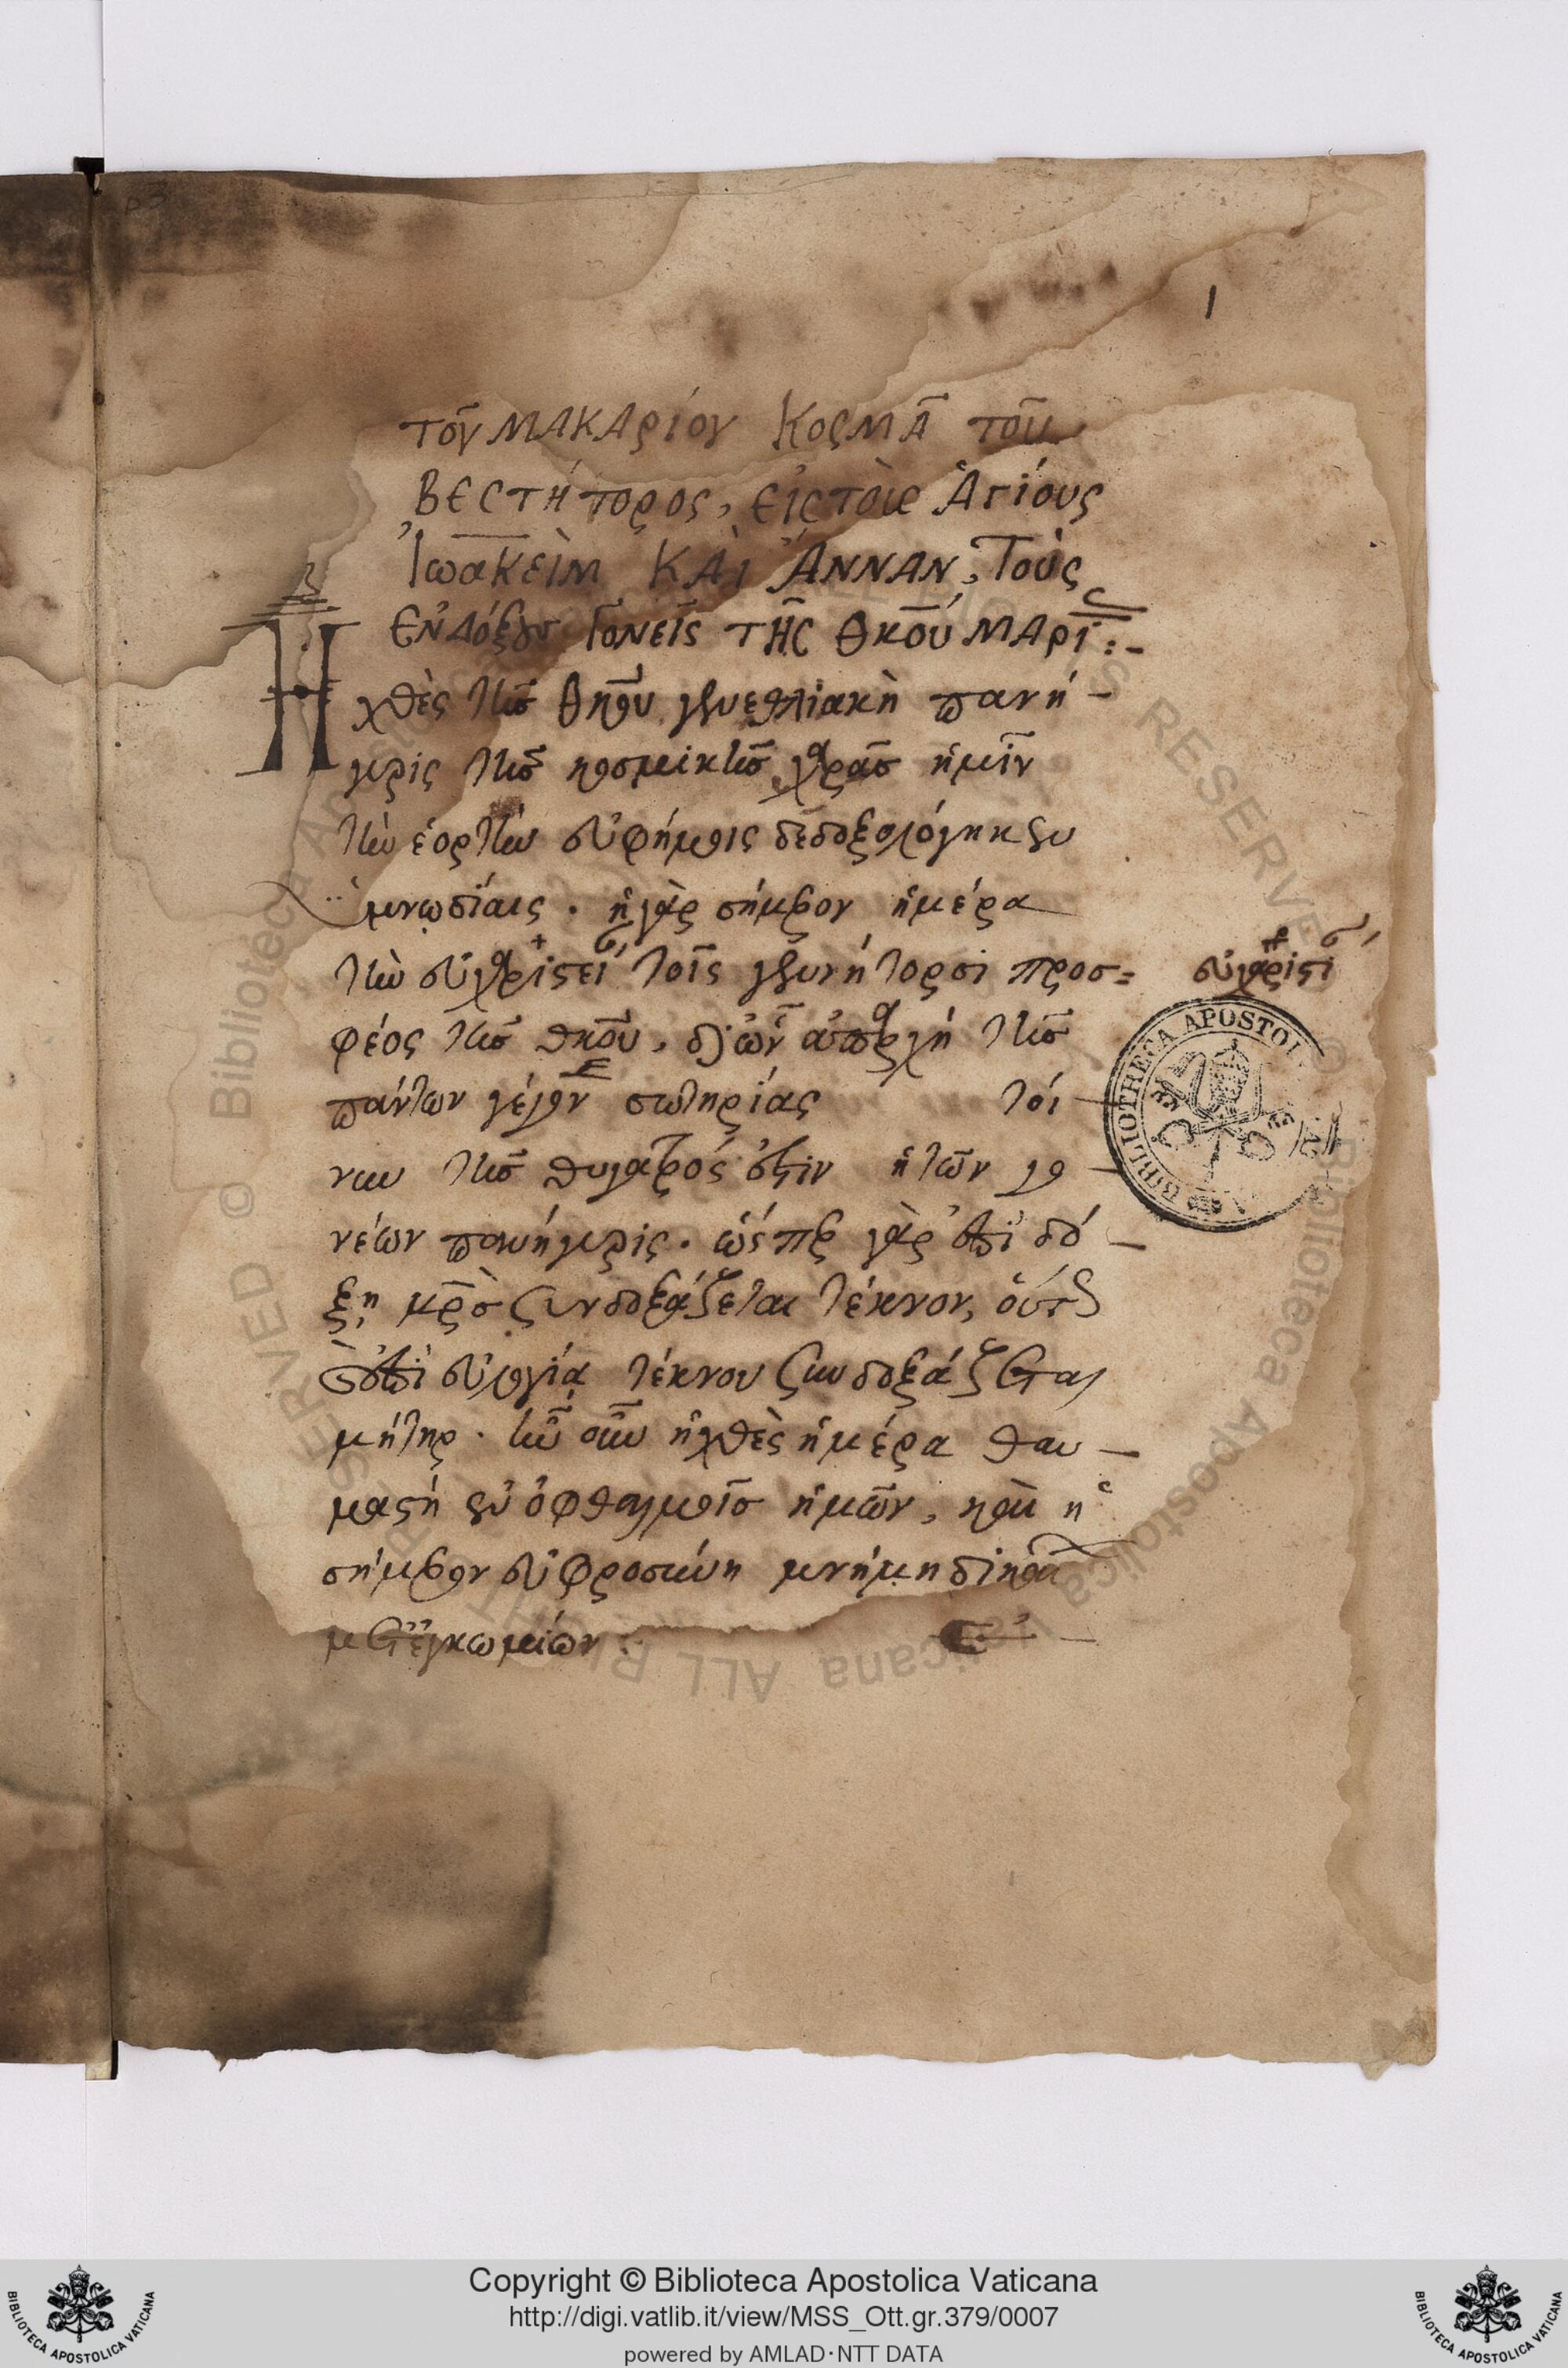 1
τοῦ ΜΑΚΑρίου Κοςμᾶ τοῦ
ΒΕΣΤήτορος, εἰς τοὺς Ἁγίους
Ἰωακεὶμ ΚΑὶ ἌΝΝΑΝ, Τοὺς
ἐνδόξους Γονεῖς τῆς Θκοῦ ΜΑΡΊ :-
Ἡ χθὲς τῆς θκου γενεθλιακὴ πανή-
γυρις τῆς κοσμικῆς χαρᾶς ἡμῖν
τὴν ἑορτὴν εὐφήμοις δεδοξολόγηκεν
ὑμνωδίαις · ἡ γὰρ σήμερον ἡμέρα
τὴν εὐχαριστεί τοῖς γεννήτορσι προσ=
εὐχαριστί
φέρει τῆς θκου, δι' ὧν ἀπαρχὴ τῆς
πάντων γέγονεν σωτηρίας τοί-
νυν τῆς θυγατρός ἐστιν ἡ τῶν γο-
νέων πανήγυρις · ὥσπερ γὰρ ἐπὶ δό-
ξῃ μρς συνδοξάζεται τέκνον, οὕτως
ἐπὶ εὐφημία τέκνου συνδοξάζεται
μήτηρ · ἦν οὖν ἡ χθὲς ἡμέρα θαυ-
μαστὴ ἐν ὀφθαλμοῖς ἡμῶν, καὶ ἡ
σήμερον εὐφροσύνη μνήμη δικαί
μετ' ἐγκωμίων :
BIBLIOTHECA APOSTOL VATICANA
© Biblioteca Apostolica Vaticana ALL RIGHTS RESERVED
Copyright © Biblioteca Apostolica Vaticana
http://digi.vatlib.it/view/MSS_Ott.gr.379/0007
powered by AMLAD·NTT DATA
BIBLIOTECA APOSTOLICA VATICANA
BIBLIOTECA APOSTOLICA VATICANA